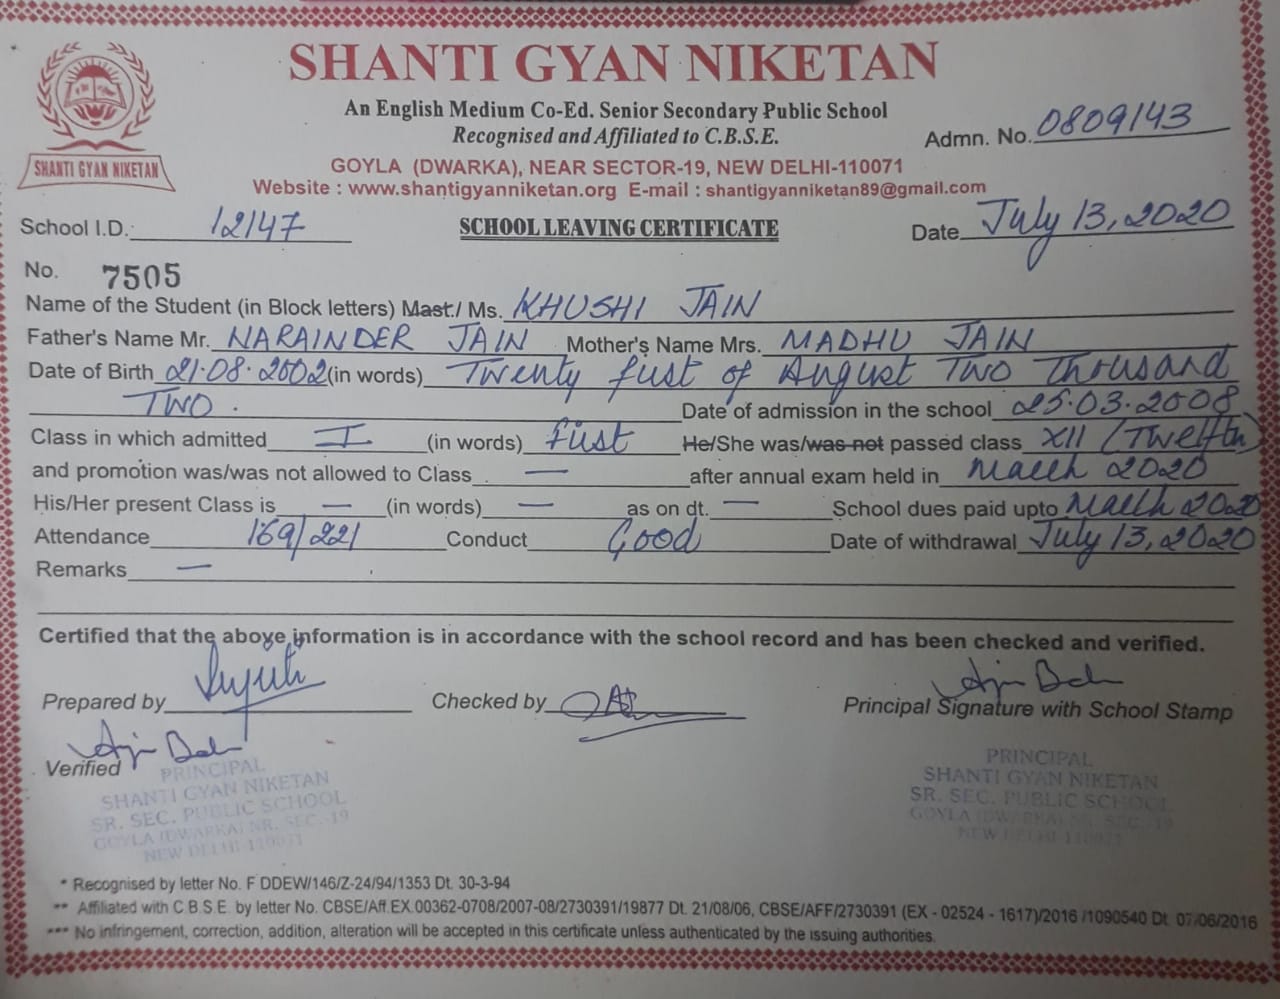 SHANTI GYAN NIKETAN
An English Medium Co-Ed. Senior Secondary Public School
Recognised and Affiliated to C.B.S.E.
Admn. No. 0809/143
SHANTI GYAN NIKETAN
GOYLA (DWARKA), NEAR SECTOR-19, NEW DELHI-110071
Website : www.shantigyanniketan.org E-mail : shantigyanniketan89@gmail.com
School I.D. 12147 SCHOOL LEAVING CERTIFICATE Date July 13, 2020
No. 7505
Name of the Student (in Block letters) Mast./ Ms. KHUSHI JAIN
Father's Name Mr. NARAINDER JAIN Mother's Name Mrs. MADHU JAIN
Date of Birth 21.08.2002 (in words) Twenty first of August Two Thousand
Two. Date of admission in the school 25.03.2008
Class in which admitted I (in words) first He/She was/was not passed class XII (Twelfth)
and promotion was/was not allowed to Class — after annual exam held in March 2020
His/Her present Class is — (in words) — as on dt. — School dues paid upto March 2020
Attendance 169/221 Conduct Good Date of withdrawal July 13, 2020
Remarks —
Certified that the above information is in accordance with the school record and has been checked and verified.
Prepared by Checked by Principal Signature with School Stamp
Verified
PRINCIPAL
SHANTI GYAN NIKETAN
SR. SEC. PUBLIC SCHOOL
GOYLA (DWARKA) NR. SEC.-19
NEW DELHI-110071
PRINCIPAL
SHANTI GYAN NIKETAN
SR. SEC. PUBLIC SCHOOL
GOYLA (DWARKA) NR. SEC.-19
NEW DELHI-110071
* Recognised by letter No. F DDEW/146/Z-24/94/1353 Dt. 30-3-94
** Affiliated with C.B.S.E. by letter No. CBSE/Aff.EX.00362-0708/2007-08/2730391/19877 Dt. 21/08/06, CBSE/AFF/2730391 (EX - 02524 - 1617)/2016 /1090540 Dt. 07/06/2016
*** No infringement, correction, addition, alteration will be accepted in this certificate unless authenticated by the issuing authorities.